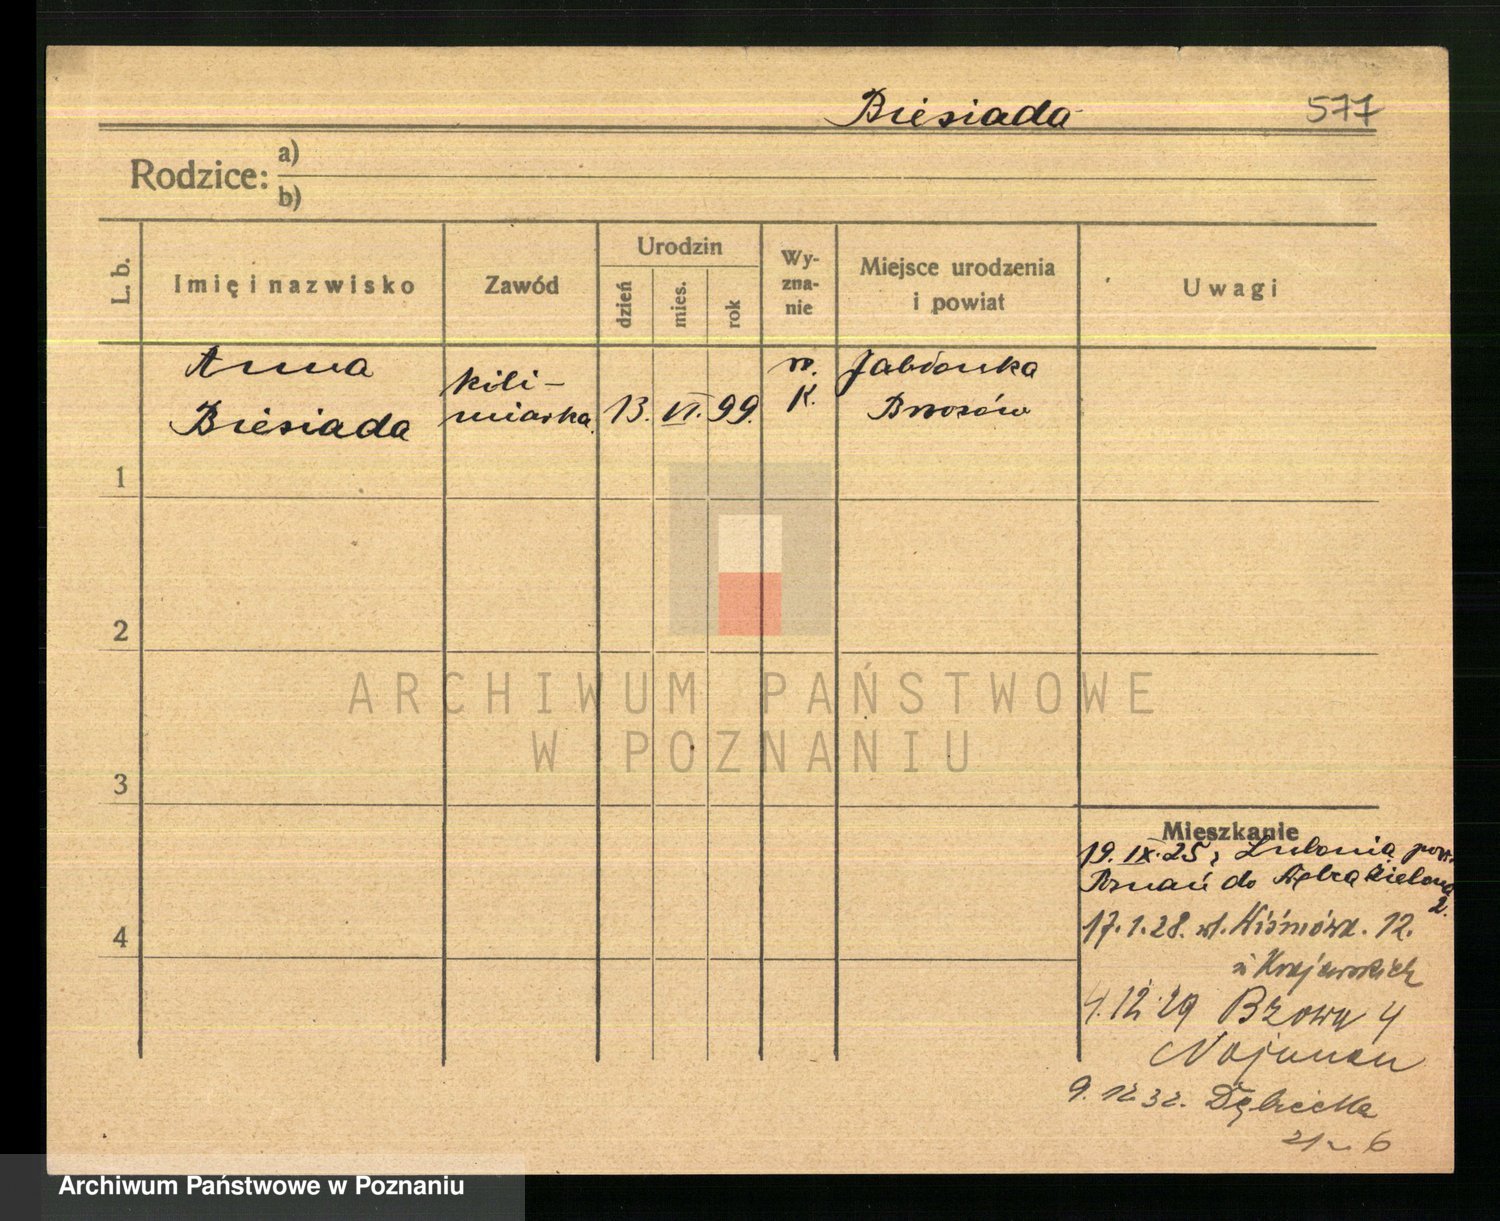 Biesiada 577
Rodzice: a)
b)
L. b.
Imię i nazwisko
Zawód
Urodzin
dzień
mies.
rok
Wy-
zna-
nie
Miejsce urodzenia
i powiat
Uwagi
Anna
Biesiada
kili-
miarka
13. VI. 99.
rz.
K.
Jabłonka
Brzozów
1
2
3
4
Mieszkanie
19. IX. 25 z Lubonia pow.
Poznań do Dębca Zielona
2.
17.1.28. Wiśniowa. 12.
u Krajewskich
4.12.29 Bzowa 4
Najman
9. 12 32. Dębiecka
21 6
ARCHIWUM PAŃSTWOWE
W POZNANIU
Archiwum Państwowe w Poznaniu